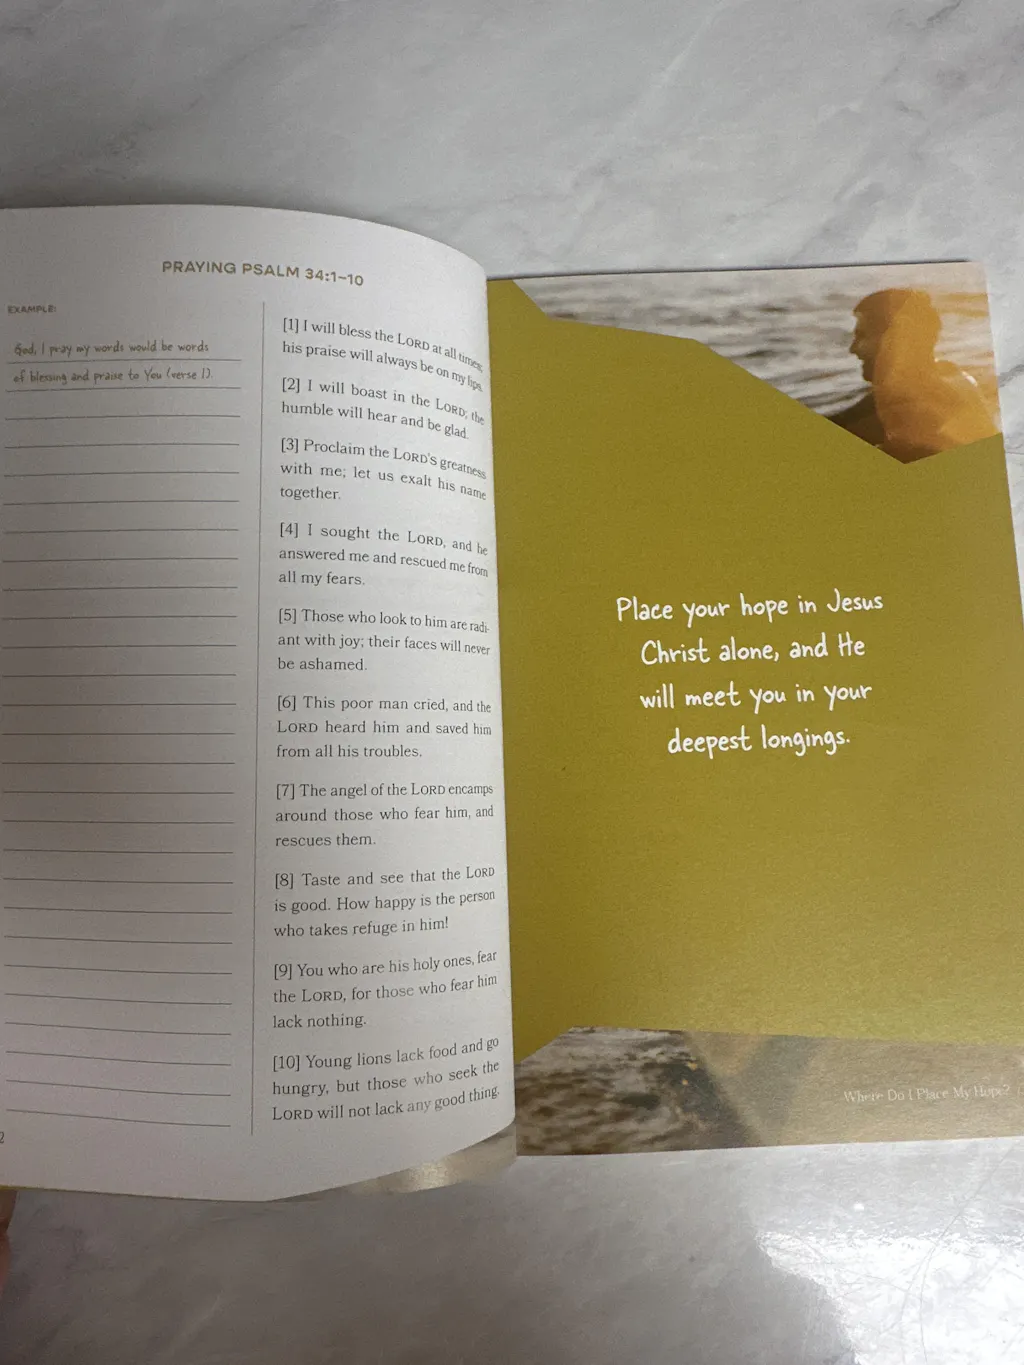 PRAYING PSALM 34:1–10
EXAMPLE:
God, I pray my words would be words
of blessing and praise to You (verse 1).
[1] I will bless the LORD at all times;
his praise will always be on my lips.
[2] I will boast in the LORD; the
humble will hear and be glad.
[3] Proclaim the LORD's greatness
with me; let us exalt his name
together.
[4] I sought the LORD, and he
answered me and rescued me from
all my fears.
[5] Those who look to him are radi-
ant with joy; their faces will never
be ashamed.
[6] This poor man cried, and the
LORD heard him and saved him
from all his troubles.
[7] The angel of the LORD encamps
around those who fear him, and
rescues them.
[8] Taste and see that the LORD
is good. How happy is the person
who takes refuge in him!
[9] You who are his holy ones, fear
the LORD, for those who fear him
lack nothing.
[10] Young lions lack food and go
hungry, but those who seek the
LORD will not lack any good thing.
2
Place your hope in Jesus
Christ alone, and He
will meet you in your
deepest longings.
Where Do I Place My Hope?